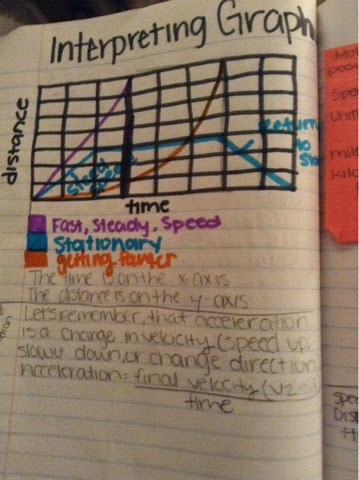 Interpreting Graph
distance
Return
to
Steady
Speed
time
Fast, Steady. Speed
Stationary
getting faster
The time is on the x-axis
The distance is on the y-axis
Let's remember, that acceleration
is a change in velocity (speed up,
slows down, or change direction
Acceleration = final velocity (V2-
time
Spe
Dis